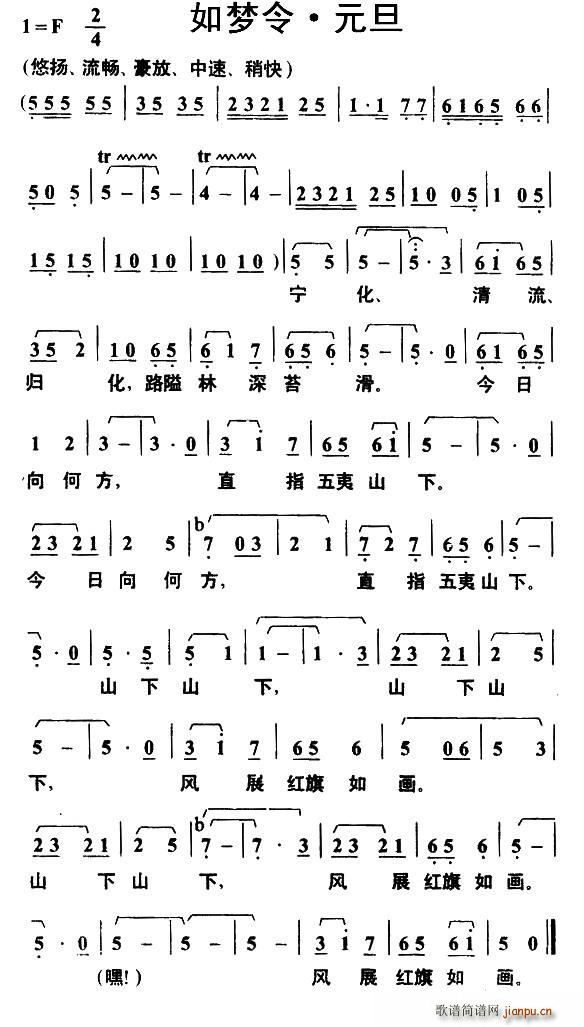 如梦令·元旦
1=F 2/4
(悠扬、流畅、豪放、中速、稍快)
(555 55 | 35 35 | 2321 25 | 1·1 77 | 6165 66 |
tr tr
50 5 | 5 - | 5 - | 4 - | 4 - | 2321 25 | 10 05 | 1 05 |
15 15 | 10 10 | 10 10) | 5 5 | 5 - | 5·3 | 61 65 |
宁 化、 清 流、
35 2 | 10 65 | 6 1 7 | 65 6 | 5 - | 5·0 | 61 65 |
归 化,路隘 林 深 苔 滑。 今 日
1 2 | 3 - | 3·0 | 3 i 7 | 65 6i | 5 - | 5·0 |
向 何 方, 直 指 五夷 山 下。
23 21 | 2 5 | b7 03 | 2 1 | 7 2 7 | 65 6 | 5 - |
今 日 向 何 方, 直 指 五夷 山 下。
5·0 | 5·5 | 5 1 | 1 - | 1·3 | 23 21 | 2 5 |
山 下 山 下, 山 下 山
5 - | 5·0 | 3 i 7 | 65 6 | 5 06 | 5 3 |
下, 风 展 红旗 如 画。
23 21 | 2 5 | b7 - | 7·3 | 23 21 | 65 6 | 5 - |
山 下 山 下, 风 展 红旗 如 画。
5·0 | 5 - | 5 - | 5 - | 3 i 7 | 65 6i | 5 0 ‖
(嘿!) 风 展 红旗 如 画。
歌谱简谱网 jianpu.cn